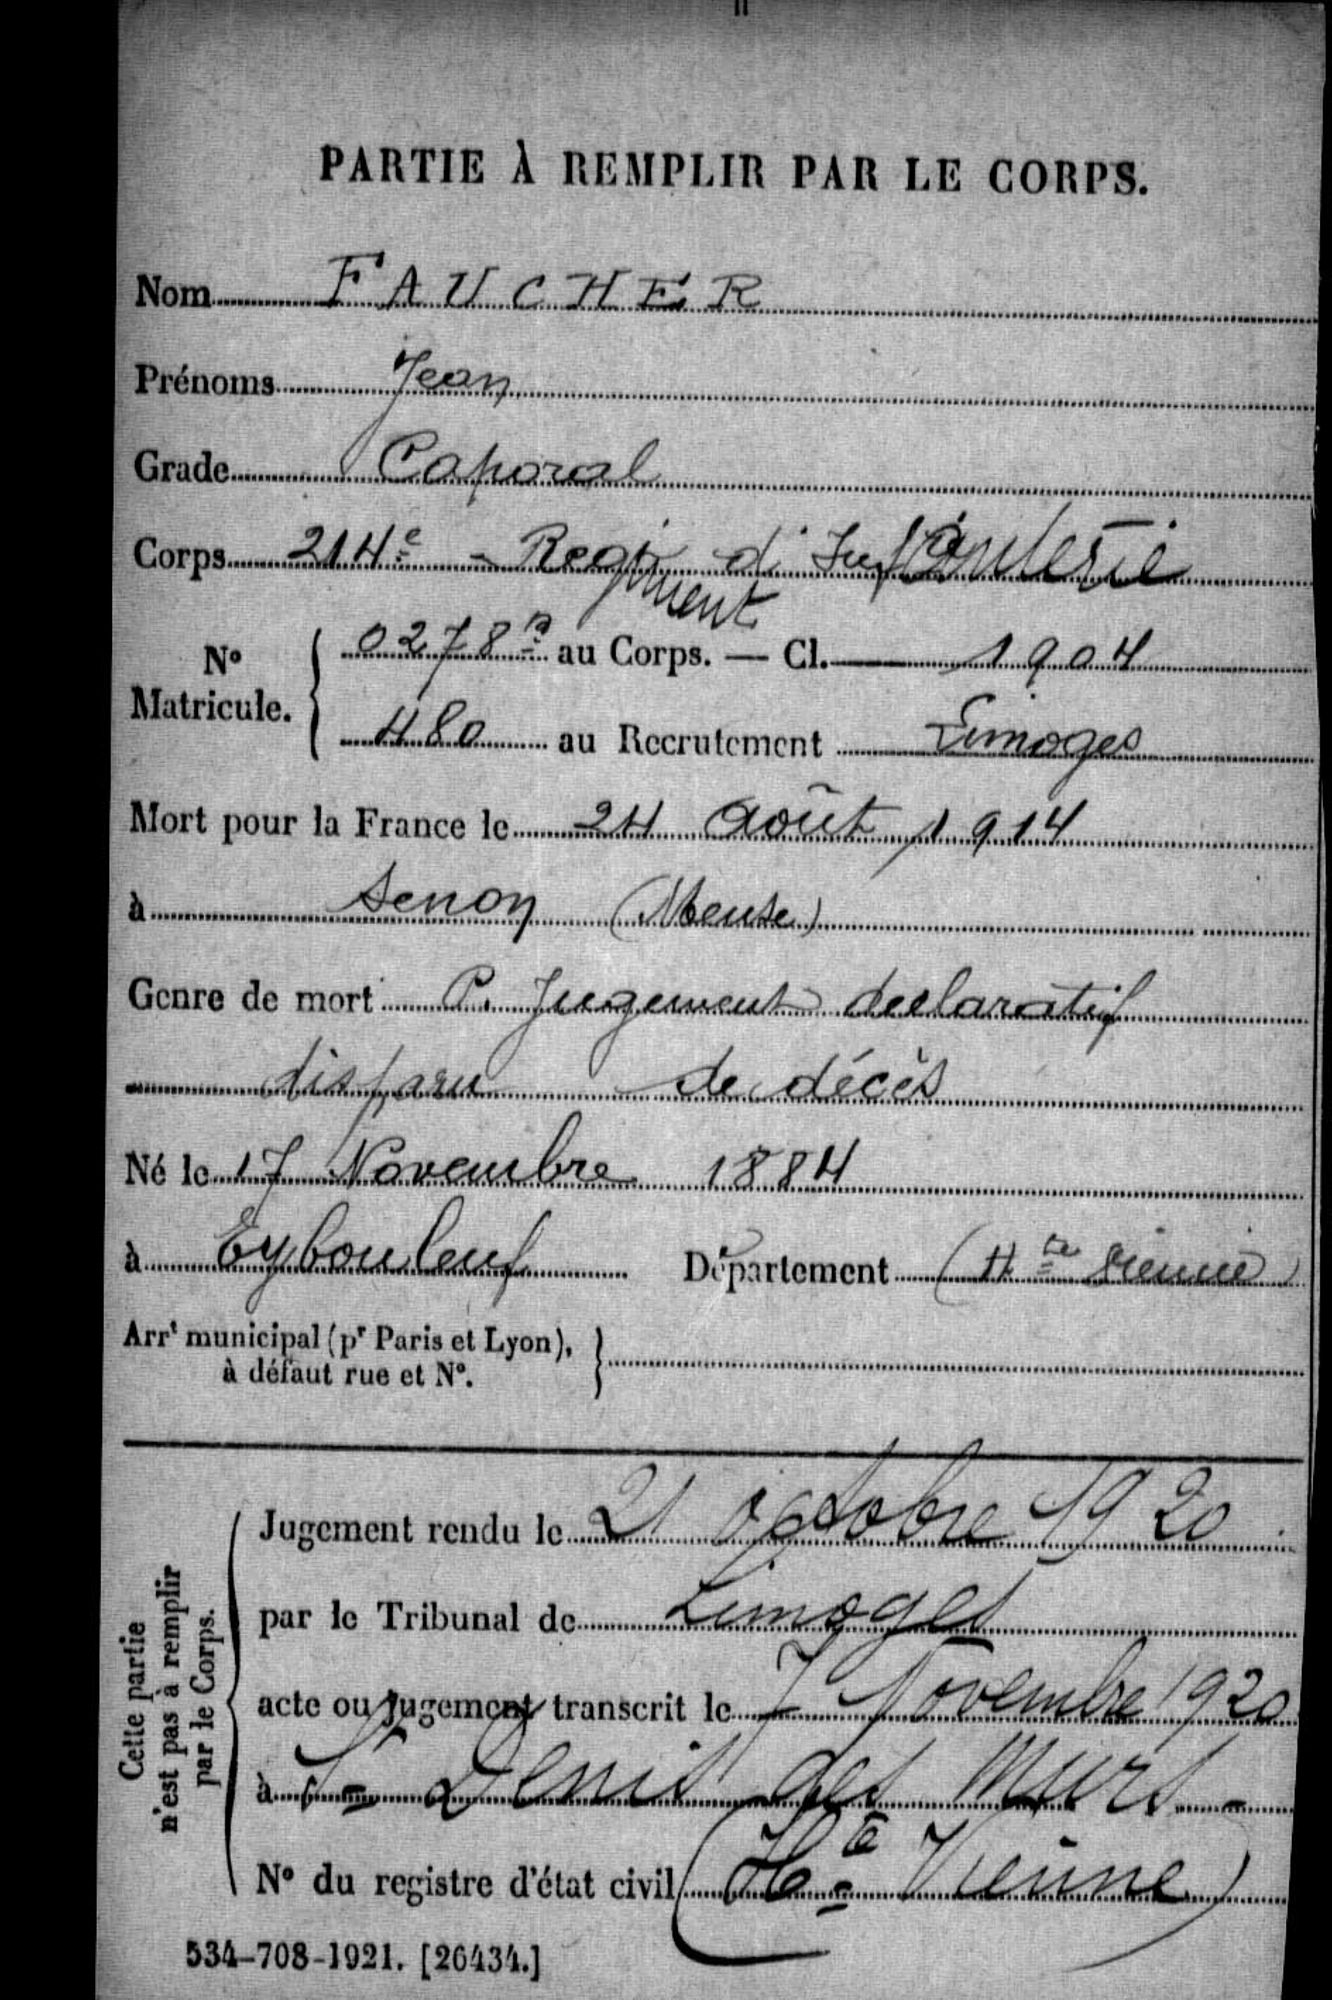 PARTIE À REMPLIR PAR LE CORPS.
Nom FAUCHER
Prénoms Jean
Grade Caporal
Corps 214e - Regiment d'Infanterie
N° Matricule. { 0278 au Corps. — Cl. 1904
480 au Recrutement Limoges
Mort pour la France le 24 Août 1914
à Senon (Meuse)
Genre de mort P. Jugement declaratif
disparu de décès
Né le 17 Novembre 1884
à Eybouleuf Département (Hte Vienne)
Arrt municipal (pr Paris et Lyon), }
à défaut rue et N°.
Cette partie
n'est pas à remplir
par le Corps.
Jugement rendu le 21 octobre 1920
par le Tribunal de Limoges
acte ou jugement transcrit le 7 Novembre 1920
à St Denis des Murs -
N° du registre d'état civil (Hte Vienne)
534-708-1921. [26434.]